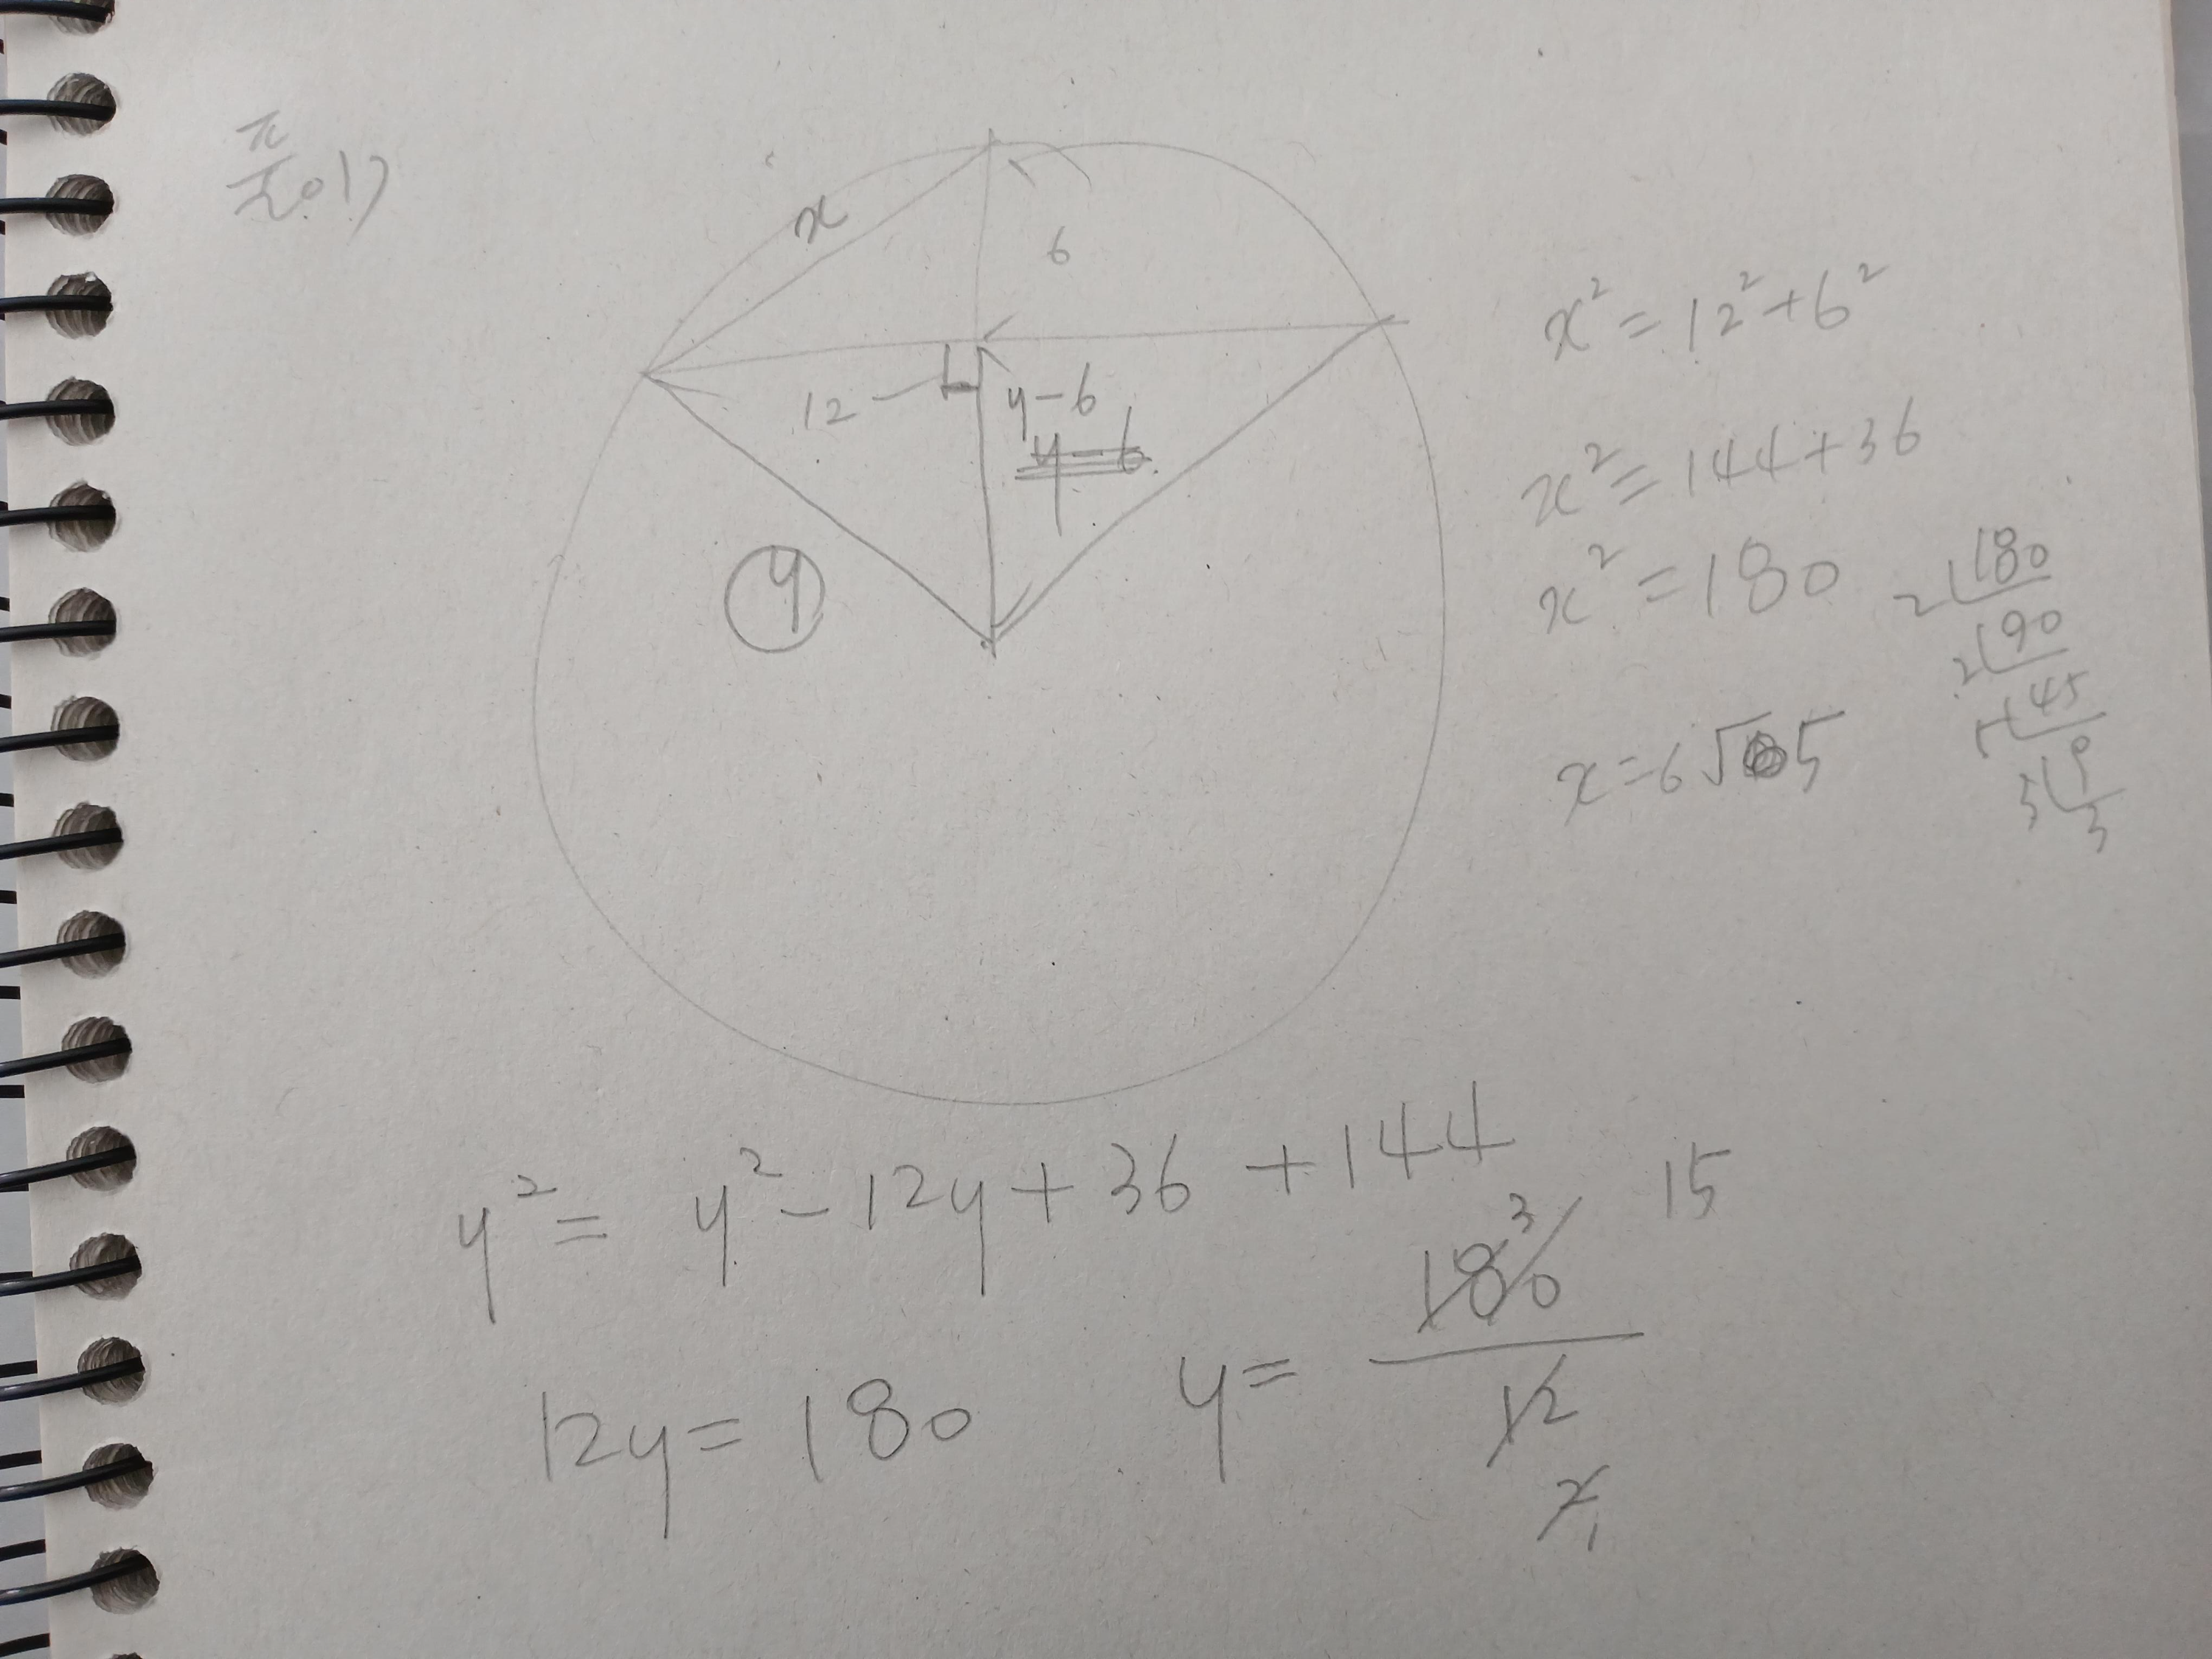 x
6
12
y-6
y-6
y
x² = 12² + 6²
x² = 144 + 36
x² = 180
x = 6√5
2 180
2 90
45
9
3
y² = y² - 12y + 36 + 144
12y = 180
y = 180/12
3
2
1
15